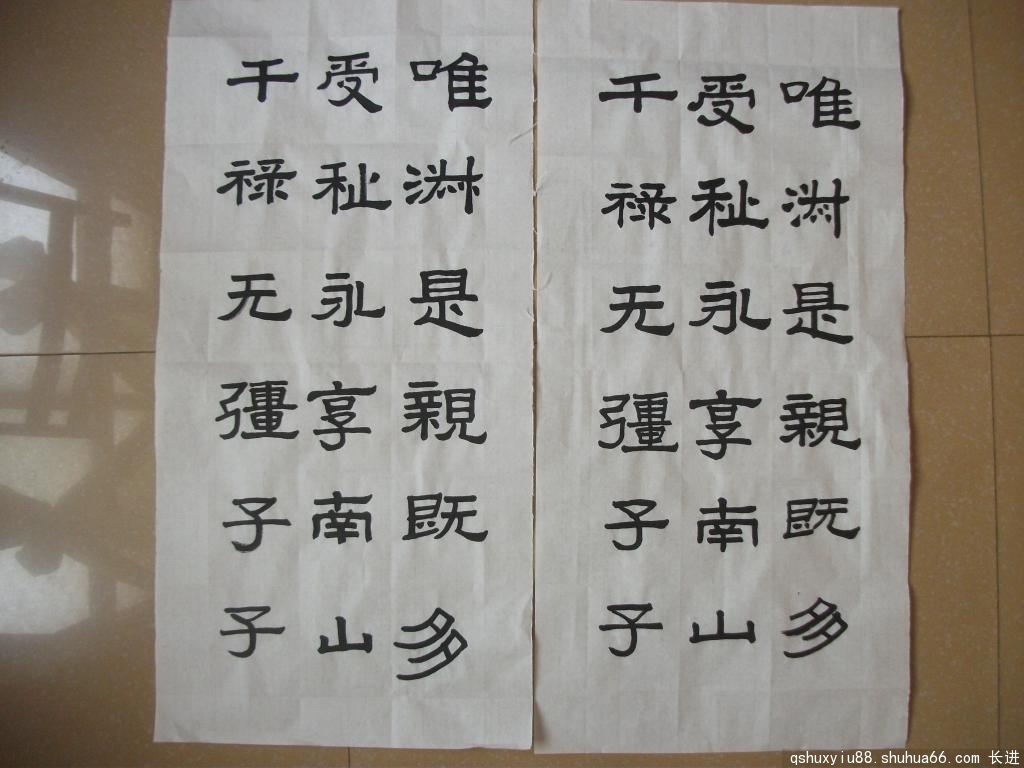 唯淑是親既多
受祉永享南山
干禄无彊子子
唯淑是親既多
受祉永享南山
干禄无彊子子
qshuxyiu88.shuhua66.com 长进